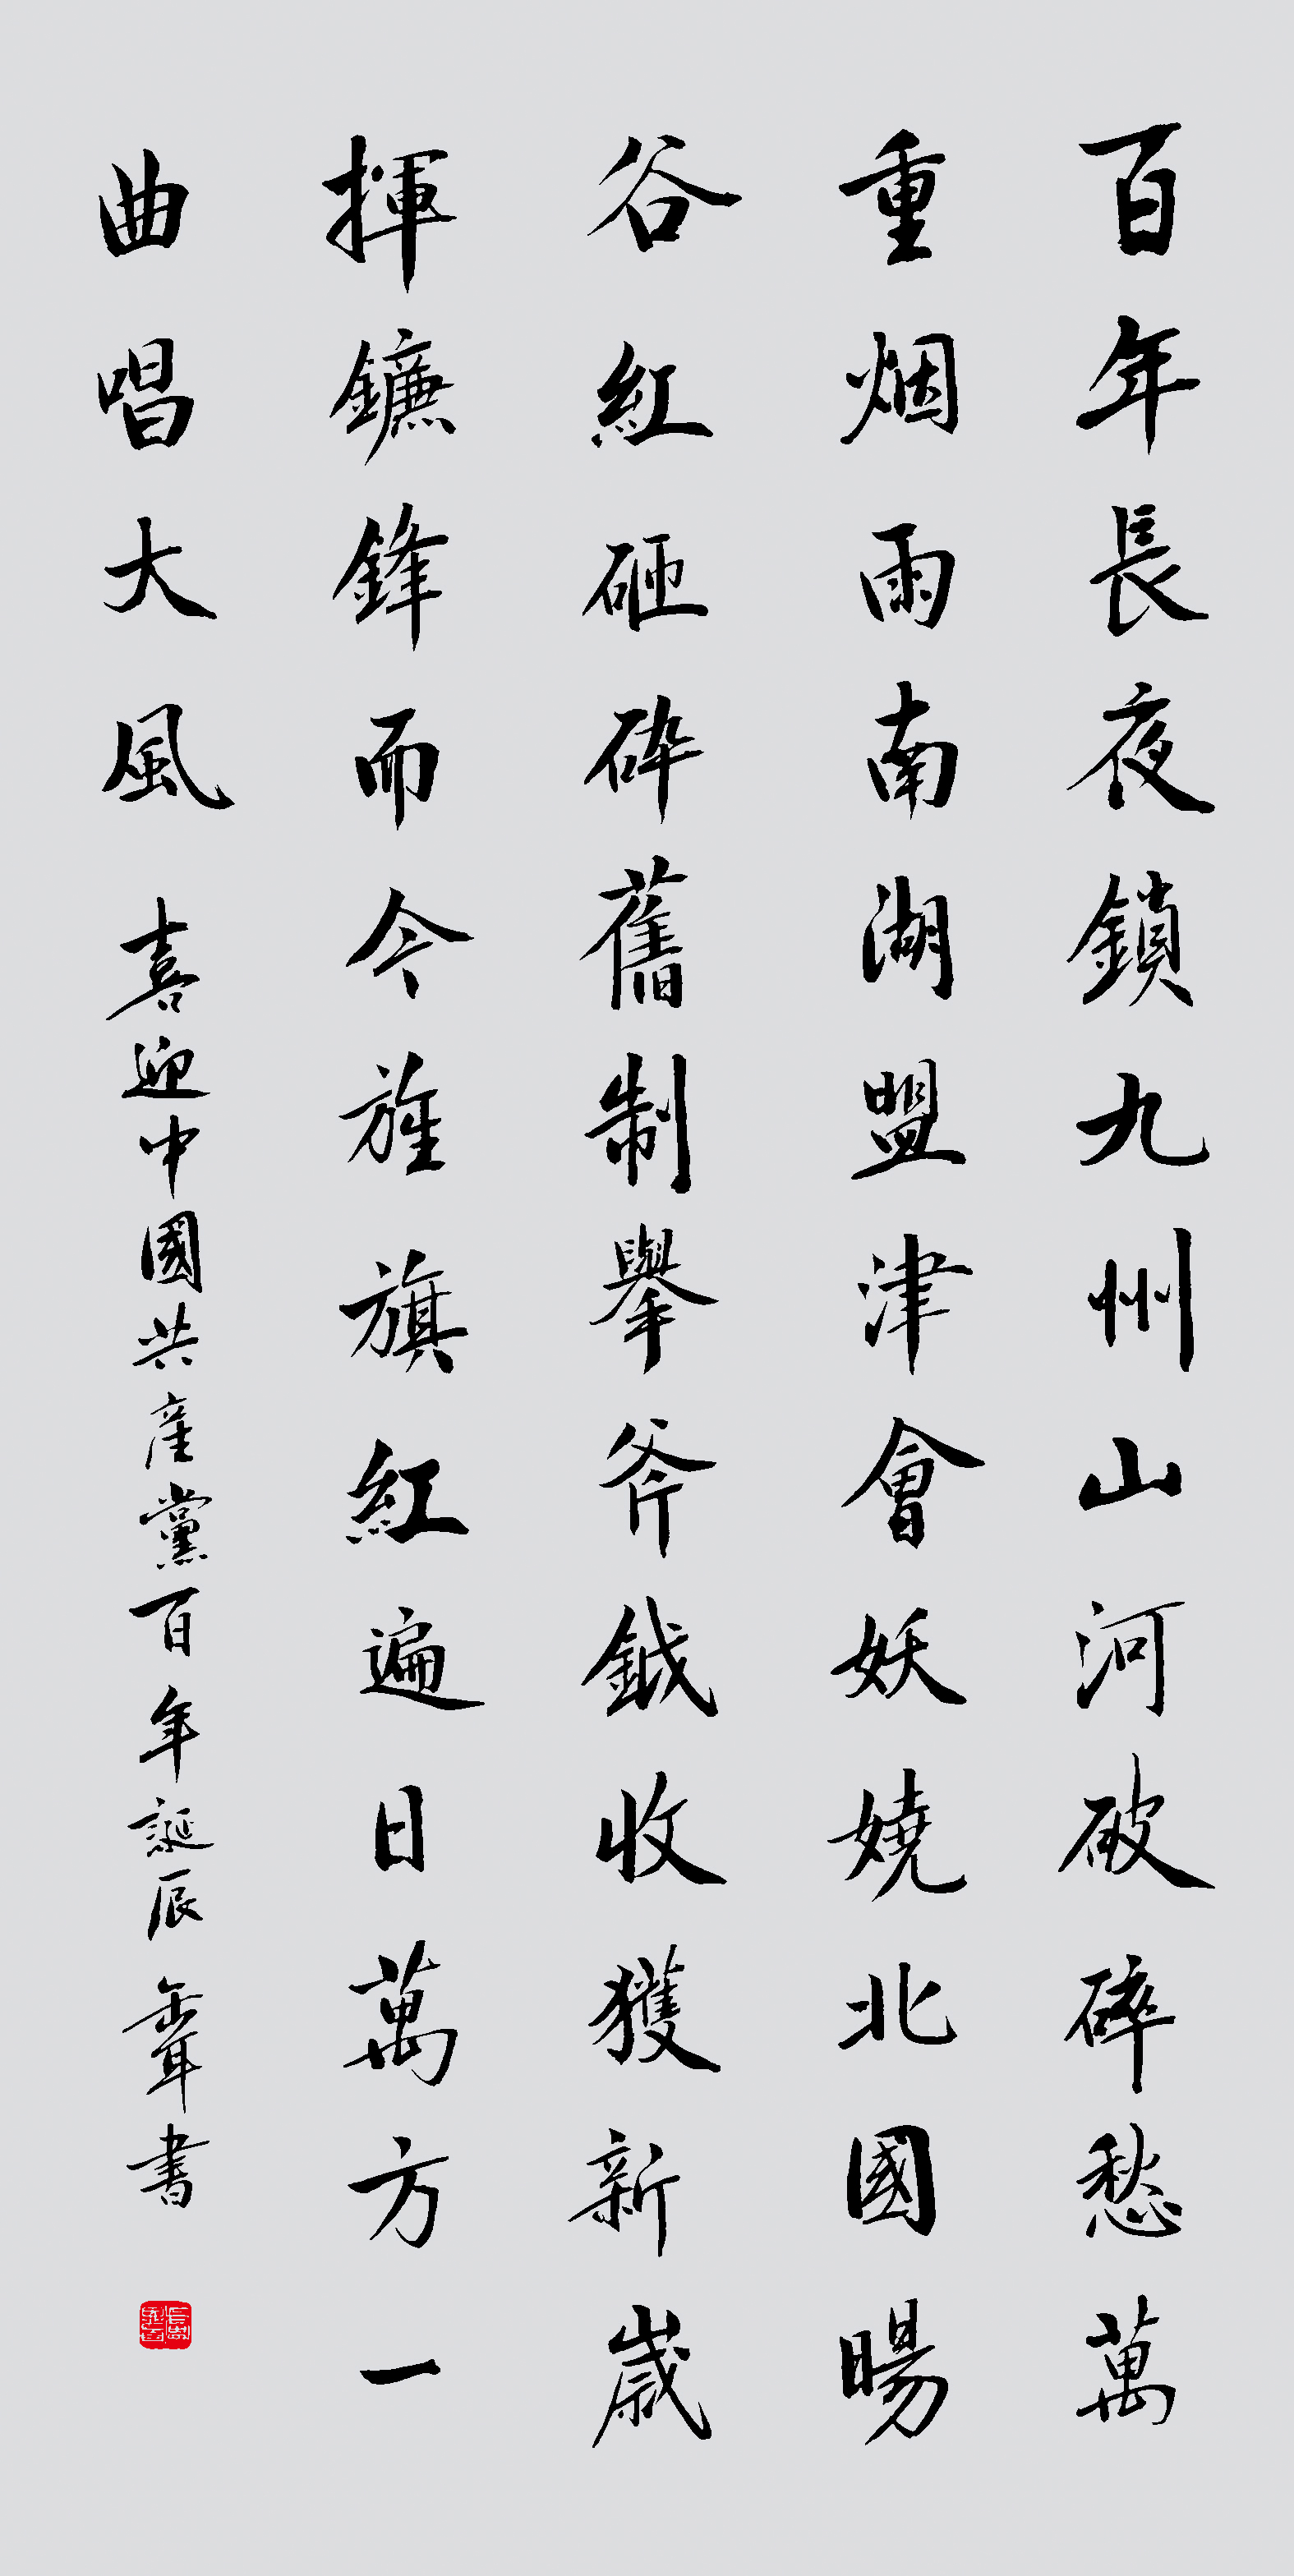 百年長夜鎖九州山河破碎愁萬
重烟雨南湖盟津會妖嬈北國暘
谷紅砸砕舊制舉斧鉞收獲新歲
揮鐮鋒而今旌旗紅遍日萬方一
曲唱大風 喜迎中國共產黨百年誕辰 書